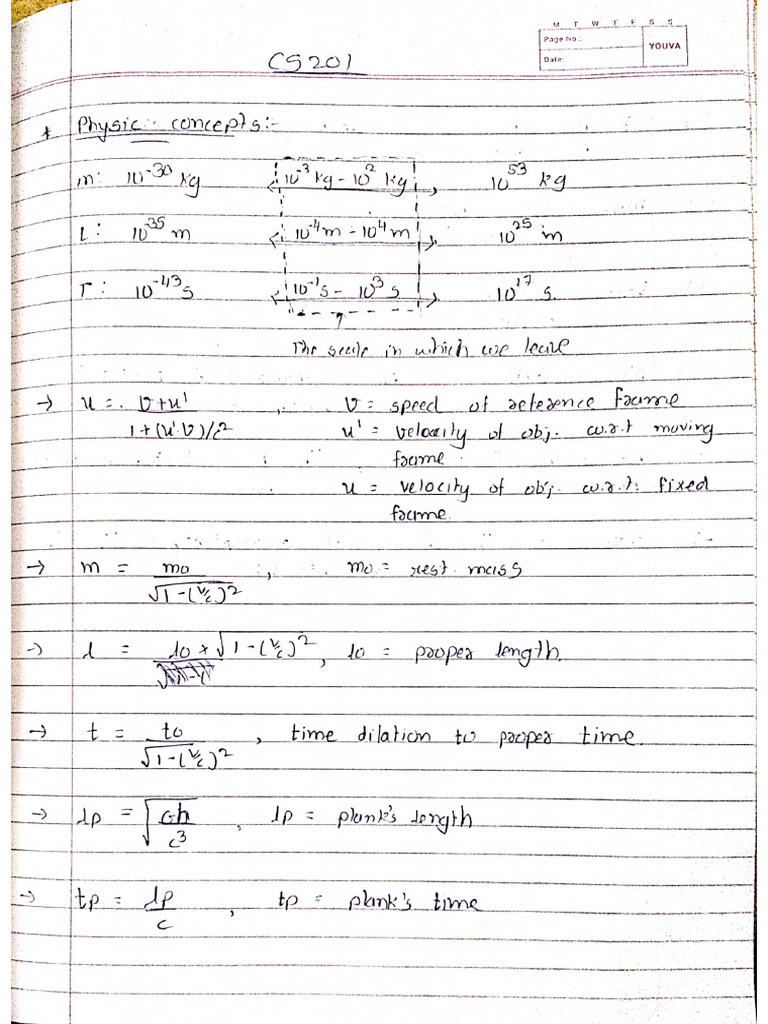 M T W T F S S
Page No.:
YOUVA
Date:
CS201
* Physic concepts:-
m: 10⁻³⁰ kg 10⁻³ kg - 10² kg, 10⁵³ kg
L: 10³⁵ m 10⁻⁴ m - 10⁴ m, 10²⁵ m
T: 10⁻⁴³ s 10⁻¹ s - 10³ s 10¹⁷ s.
The scale in which we leave
→ u = v+u' / 1+(u'.v)/c² , v = speed of reference frame
u' = velocity of obj. w.r.t moving
frame
u = velocity of obj. w.r.t. fixed
frame.
→ m = mo / √1-(v/c)² , mo = rest mass
→ l = lo * √1-(v/c)² , lo = proper length.
→ t = to / √1-(v/c)² , time dilation to proper time.
→ lp = √Gh/c³ , lp = plank's length
→ tp = lp / c , tp = plank's time